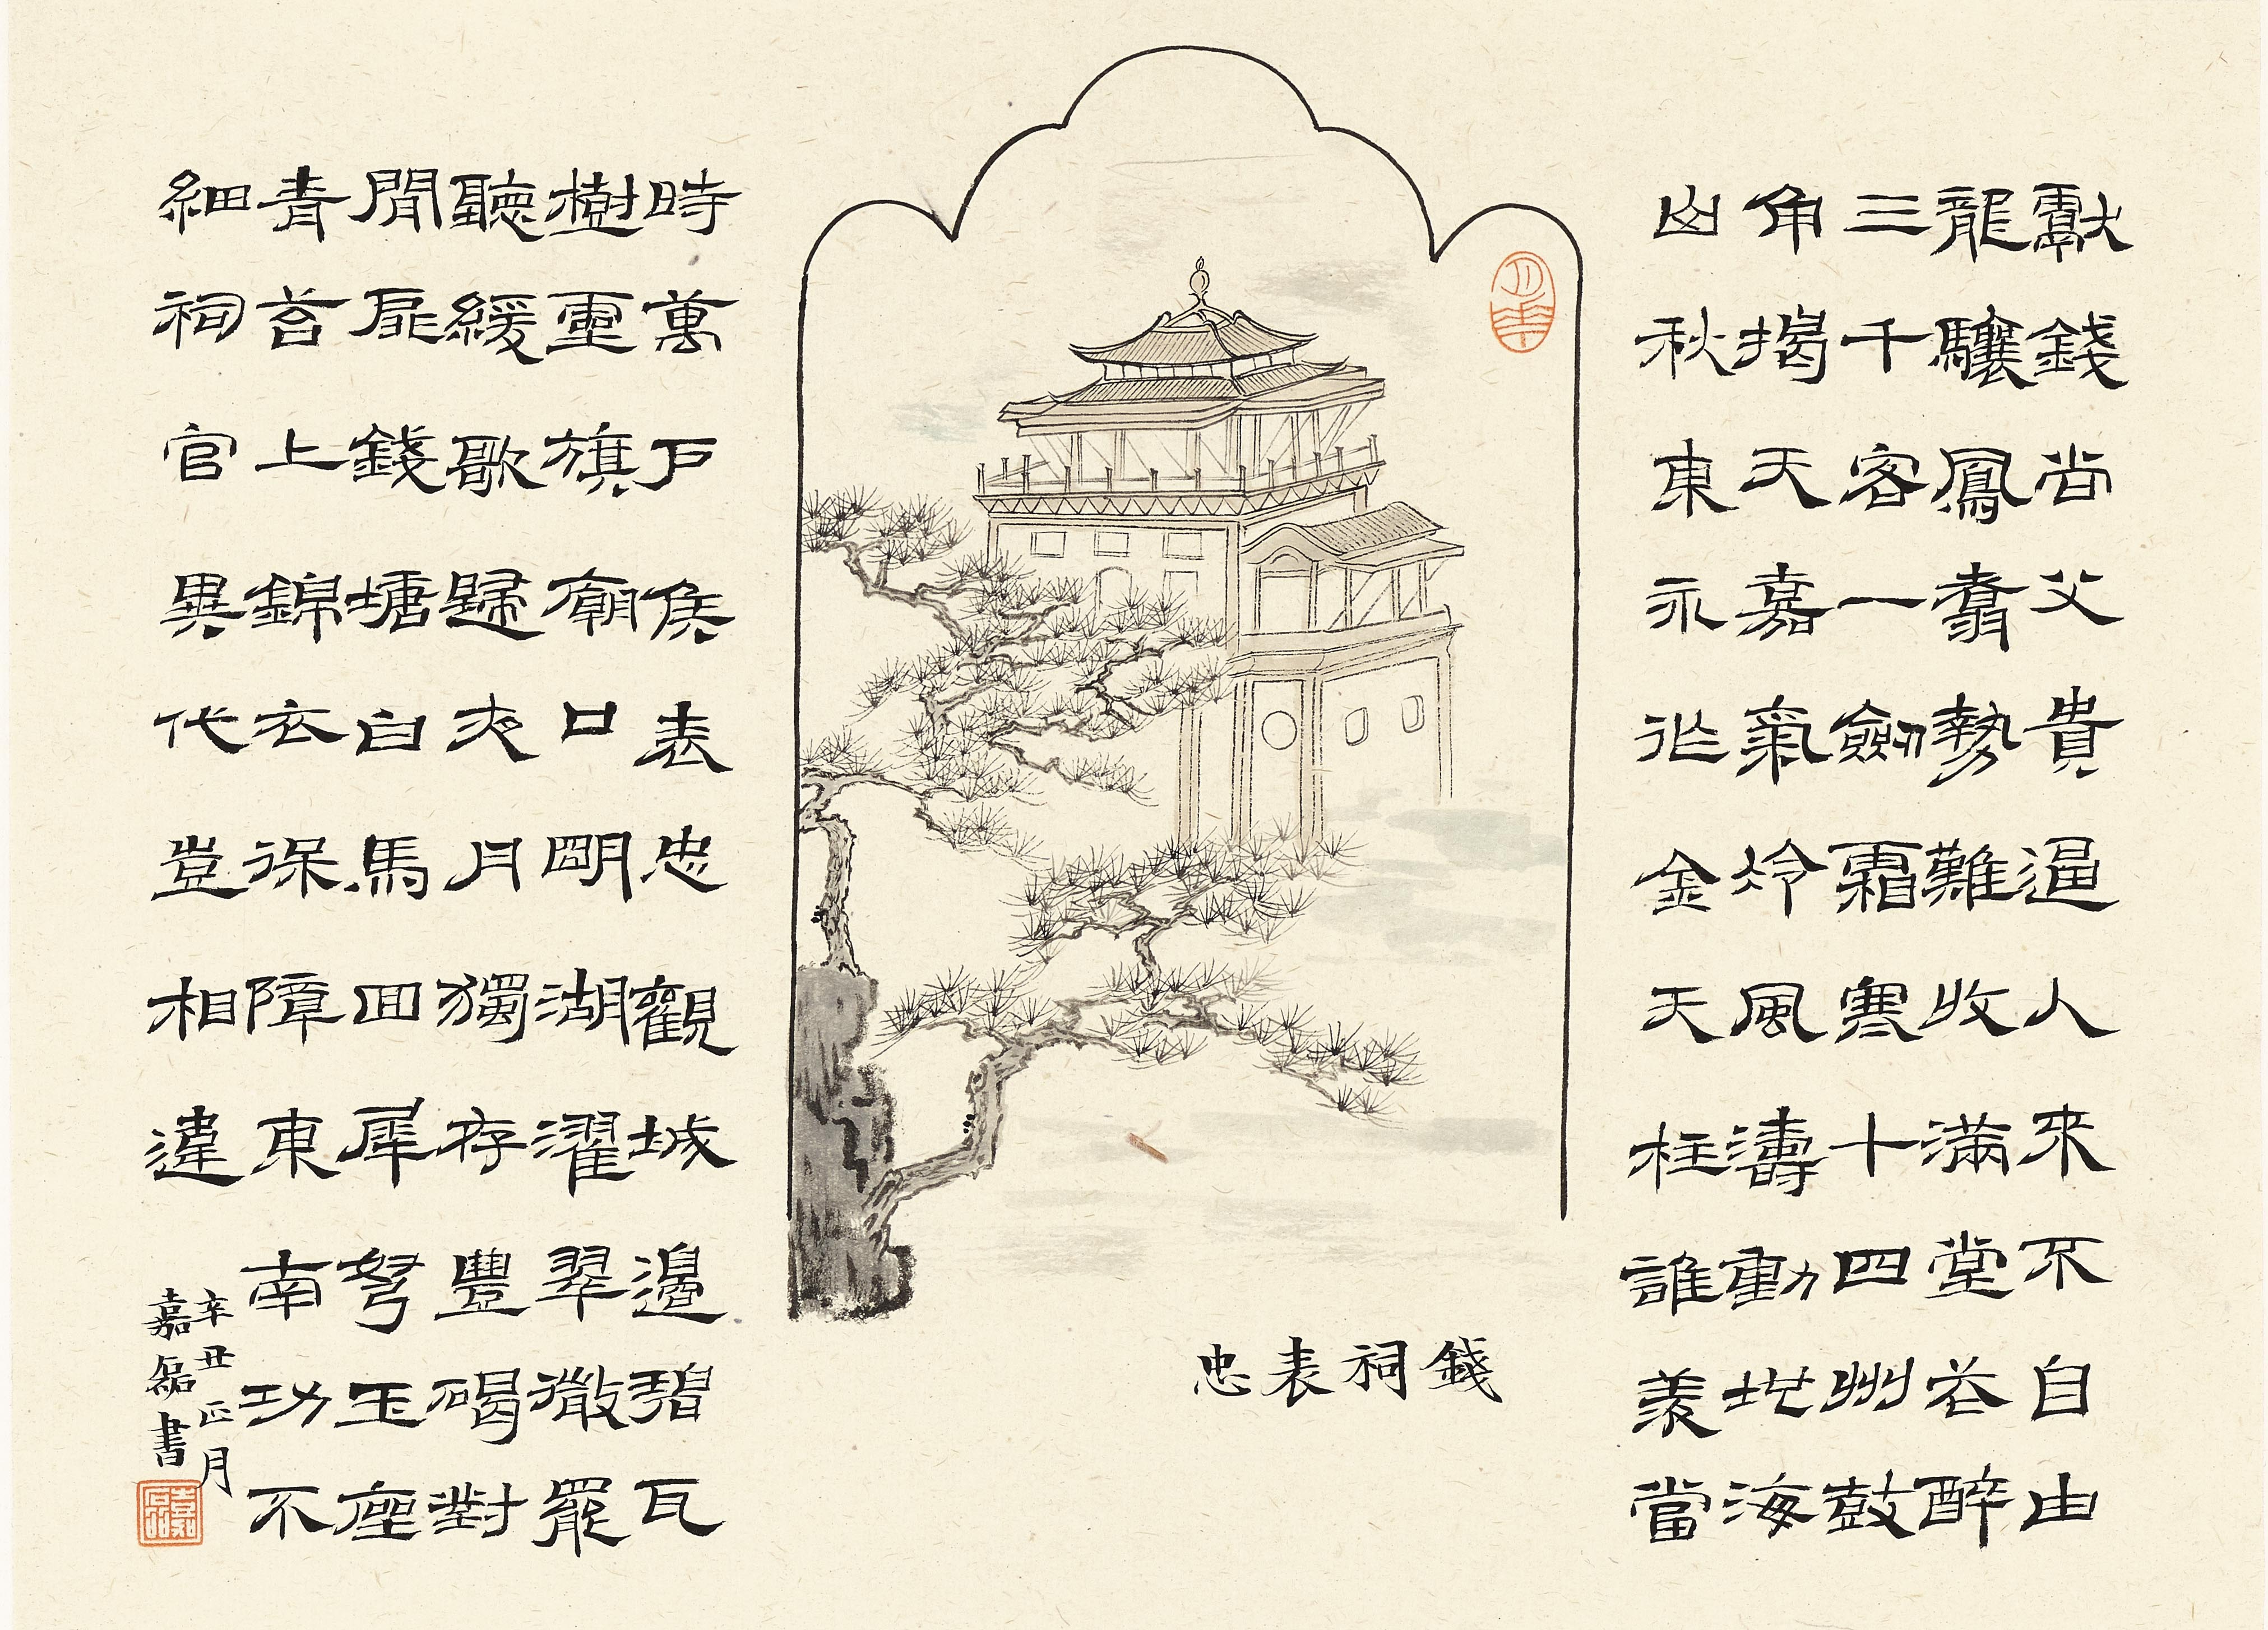 獻錢尚父貴逼人來不自由
龍驤鳳翥勢難收滿堂花醉
三千客一劍霜寒十四州鼓
角揭天嘉氣冷風濤動地海
山秋東永作金天柱誰羨當
時萬戶侯表忠觀城邊碧瓦
樹靈旗廟口明湖濯翠微罷
聽緩歌歸夜月獨存豐碣對
閒扉錢塘白馬回犀弩玉座
青苔上錦衣保障東南功不
細祠官異代豈相違
辛丑正月
嘉磊書
嘉磊
錢祠表忠